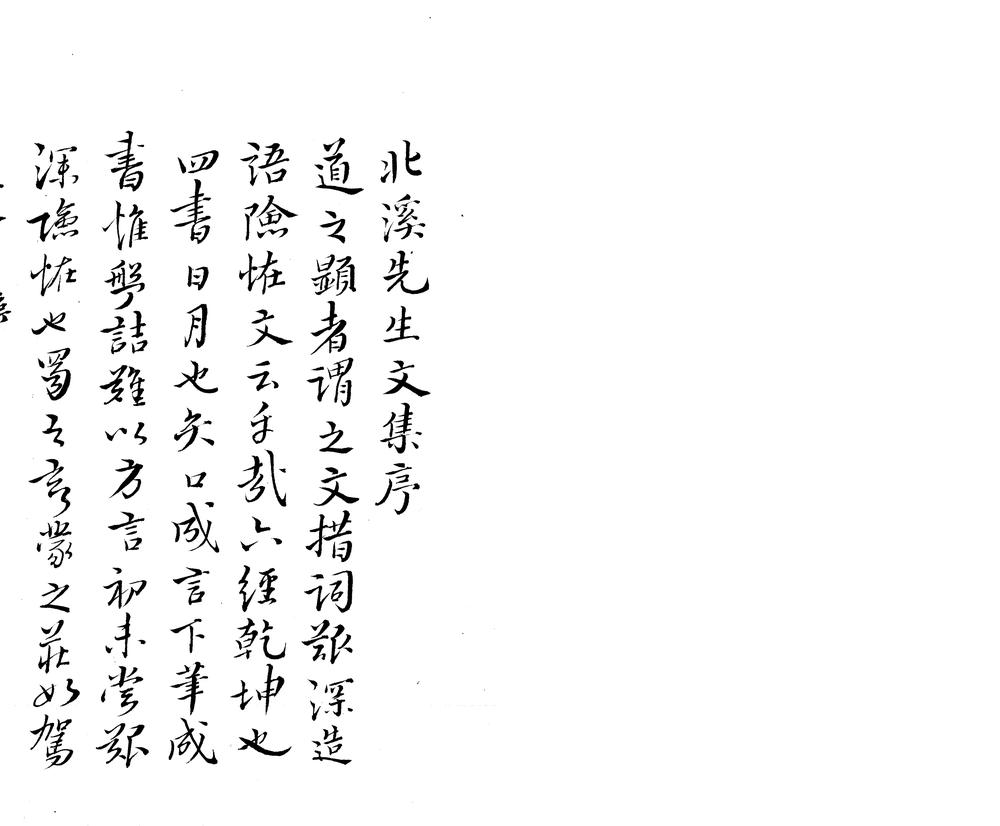 北溪先生文集序
道之顯者謂之文措詞艱深造
語險怪文云乎哉六經乾坤也
四書日月也矢口成言下筆成
書惟盤詰難以方言初未嘗艱
深險怪也蜀之言蒙之莊如駕